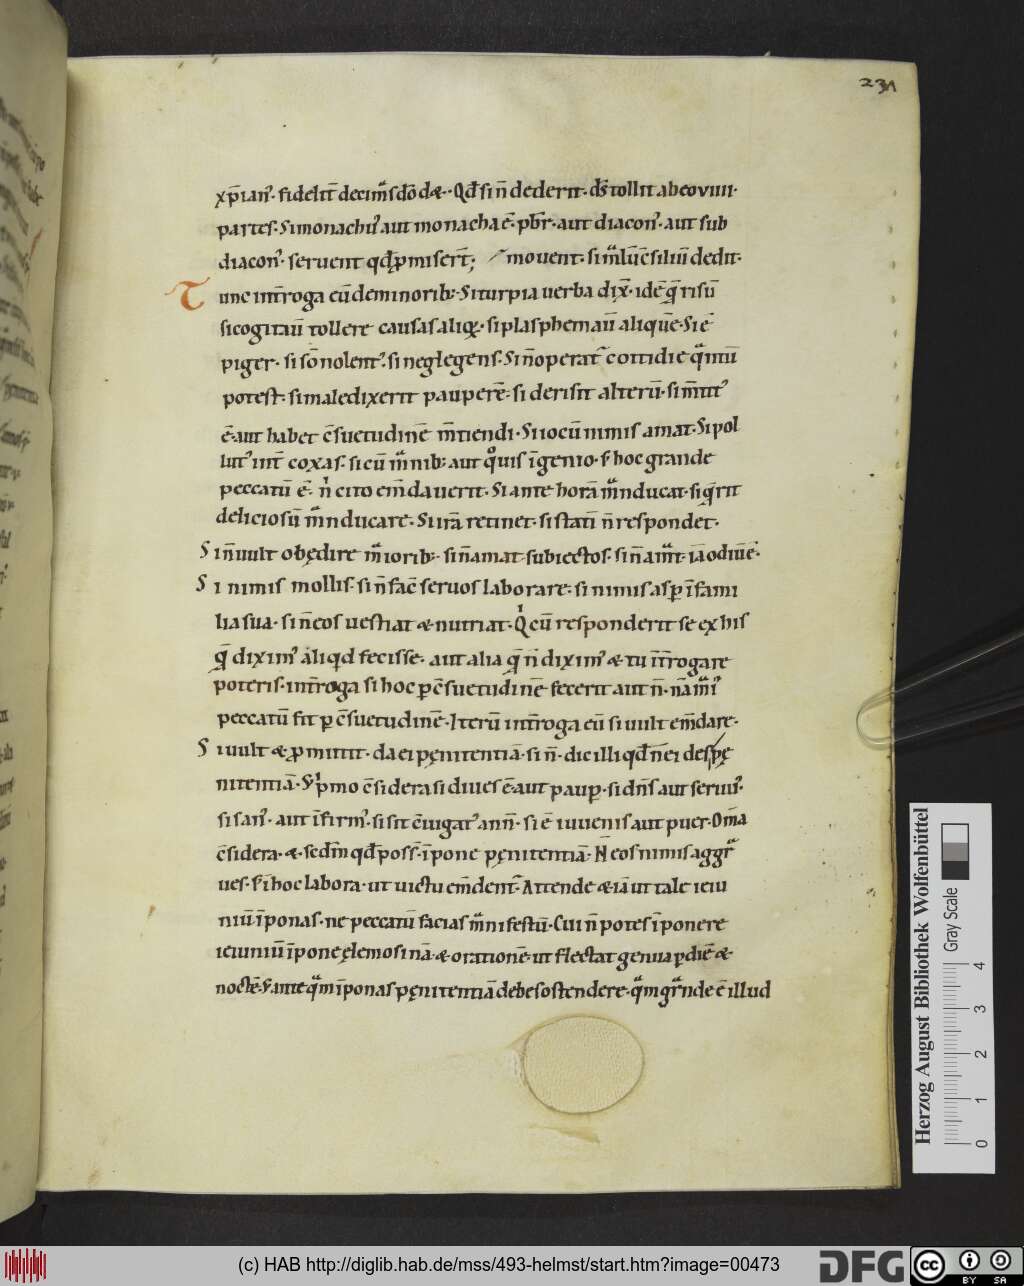 231
xp̄ian᷒. fidelit̄ decimas dō dæ. Qđ si n̄ dederit. ds̄ tollit ab eo viiii.
partes. Si monachu᷒ aut monacha ē. pb̄r. aut diacon᷒. aut sub
diacon᷒. seruent qđ p̄miser̄t; mouent. si malū c̄siliū dedit.
Tunc int̄roga eū de minorib; Si turpia uerba dix̄. idē q̄ risū
si cogitauī tollere causas aliq̄. si plasphemauī aliquē. Si ē
piger. si sōnolent᷒. si neglegens. Si n̄ operat᷒ cottidie quantū
potest. si maledixerit pauperē. si derisit alterū. si mitit᷒
ē. aut habet c̄suetudinē m̄tiendi. Si iocū nimis amat. Si pol
lut᷒ int̄ coxas. si cū manib; aut quouis ingenio. s; hoc grande
peccatū ē. n̄ cito em̄dauerit. Si ante horā manducat. si q̄rit
deliciosū manducare. Si irā retinet. si statī n̄ respondet.
Si n̄ uult obędire maiorib; si n̄ amat subiectos. si n̄ amat. iā odiū ē.
Si nimis mollis. si n̄ fac̄ seruos laborare. si nimis asp̱ ī fami
lia sua. si n̄ eos uestiat & nutriat. Qi cū responderit se ex his
q̄ dixim᷒ aliqđ fecisse. aut alia q̄ n̄ dixim᷒ & tu īt̄rogare
poteris. int̄roga si hoc p̱ c̄suetudinē fecerit aut n̄. nā mai᷒
peccatū fit p̱ c̄suetudinē. Iterū int̄roga eū si uult em̄dare.
Si uult & p̱mittit. da ei pęnitentiā. si n̄. dic illi qđ n̄ ei des pę
nitentiā. S; p̱mo c̄sidera si diues ē. aut paup̱. si dn̄s aut seruu᷒.
si san᷒. aut īfirm᷒. si sit c̄iugat᷒ ann̄. si ē iuuenis aut puer. Om̄a
c̄sidera. & sedm̄ qđ poss̄. īpone pęnitentiā. N̄ eos nimis aggra
ues. s; ī hoc labora. ut uictu em̄dent᷒. Attende & iā ut tale ieiu
niū īponas. ne peccatū facias manifestū. Cui n̄ potes īponere
ieiuniū īpone ęlemosinā. & orationē. ut flectat genua p̱ diē &
noctē. s; ante quam īponas pęnitentiā debes ostendere. quam grande ē illud
Herzog August Bibliothek Wolfenbüttel
Gray Scale
0 1 2 3 4
(c) HAB http://diglib.hab.de/mss/493-helmst/start.htm?image=00473
DFG
cc BY SA